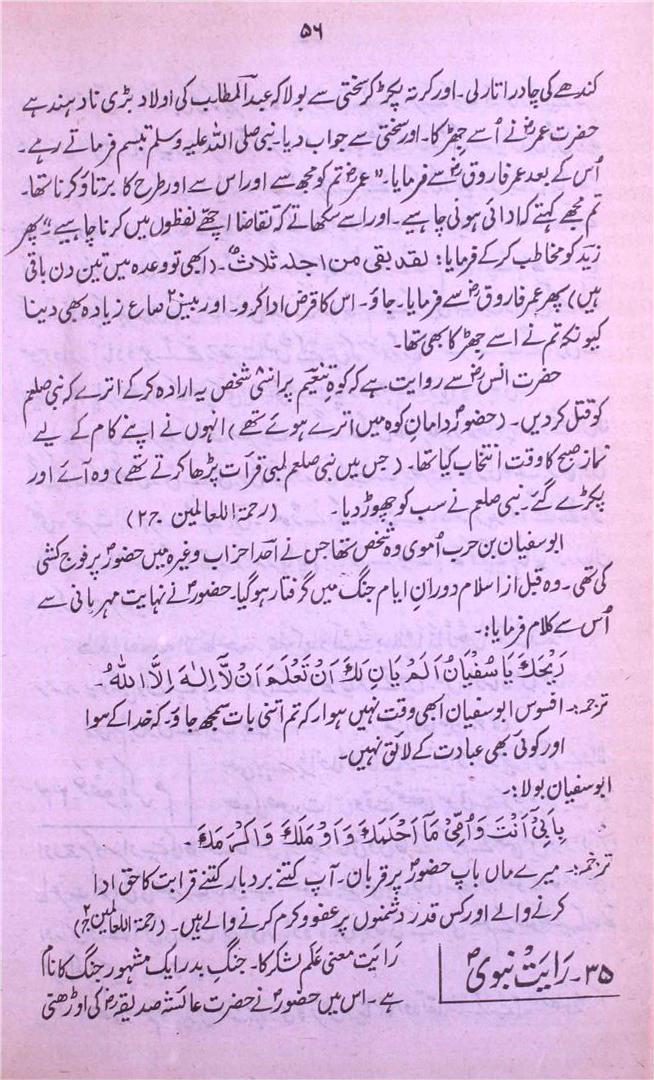 ۵۶
کندھے کی چادر اتار لی۔ اور کرتہ پکڑ کر سختی سے بولا کہ عبد المطلب کی اولاد بڑی ناد ہند ہے
حضرت عمرؓ نے اُسے جھڑکا۔ اور سختی سے جواب دیا۔ نبی صلی اللہ علیہ وسلم تبسم فرماتے رہے۔
اُس کے بعد عمر فاروقؓ سے فرمایا۔ "عمرؓ تم کو مجھ سے اور اس سے اور طرح کا برتاؤ کرنا تھا۔
تم مجھے کہتے کہ ادائی ہونی چاہیے۔ اور اسے سکھاتے کہ تقاضا اچھے لفظوں میں کرنا چاہیے"۔ پھر
زیدؓ کو مخاطب کر کے فرمایا؛ لقد بقی من اجلہ ثلاث۔ (ابھی تو وعدہ میں تین دن باقی
ہیں) پھر عمر فاروقؓ سے فرمایا۔ جاؤ۔ اس کا قرض ادا کرو۔ اور بیس۲۰ صاع زیادہ بھی دینا
کیونکہ تم نے اسے جھڑکا بھی تھا۔
حضرت انسؓ سے روایت ہے کہ کوہِ تنعیم پر اسّی شخص یہ ارادہ کر کے اترے کہ نبی صلعم
کو قتل کر دیں۔ (حضورؐ دامانِ کوہ میں اترے ہوئے تھے) انہوں نے اپنے کام کے لیے
نماز صبح کا وقت انتخاب کیا تھا۔ (جس میں نبی صلعم لمبی قرأت پڑھا کرتے تھے) وہ آئے اور
پکڑے گئے۔ نبی صلعم نے سب کو چھوڑ دیا۔ (رحمۃ اللعالمین ج۲)
ابوسفیان بن حرب اُموی وہ شخص تھا جس نے اُحد احزاب وغیرہ میں حضورؐ پر فوج کشی
کی تھی۔ وہ قبل از اسلام دورانِ ایام جنگ میں گرفتار ہو گیا۔ حضورؐ نے نہایت مہربانی سے
اُس سے کلام فرمایا:۔
رَیْحَكَ یَا سُفْیَانُ اَلَمْ یَانِ لَكَ اَنْ تَعْلَمَ اَنْ لَّآ اِلٰہَ اِلَّا اللّٰہُ۔
ترجمہ:۔ افسوس ابوسفیان ابھی وقت نہیں ہوا، کہ تم اتنی بات سمجھ جاؤ۔ کہ خدا کے سوا
اور کوئی بھی عبادت کے لائق نہیں۔
ابوسفیان بولا:۔
بِاَبِیْ اَنْتَ وَ اُمِّیْ مَآ اَحْلَمَكَ وَ اَوْصَلَكَ وَ اَكْرَمَكَ۔
ترجمہ:۔ میرے ماں باپ حضورؐ پر قربان۔ آپ کتنے بردبار کتنے قرابت کا حق ادا
کرنے والے اور کس قدر دشمنوں پر عفو و کرم کرنے والے ہیں۔ (رحمۃ اللعالمین ج۲)
۳۵۔ رَایَتْ نبویؐ
رَایَت معنی عَلَم لشکر کا۔ جنگِ بدر ایک مشہور جنگ کا نام
ہے۔ اس میں حضورؐ نے حضرت عائشہ صدیقہؓ کی اوڑھنی